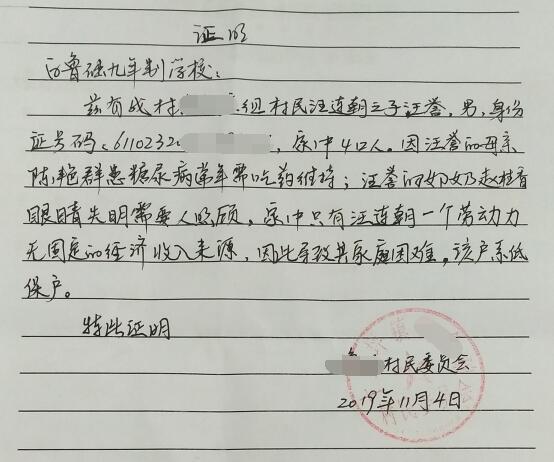 证明
白鲁础九年制学校：
兹有我村 组村民汪连朝之子汪誉，男，身份
证号码：6110232 ，家中4口人。因汪誉的母亲
陈艳群患糖尿病常年需吃药维持；汪誉的奶奶赵桂香
眼睛失明需要人照顾，家中只有汪连朝一个劳动力
无固定的经济收入来源，因此导致其家庭困难。该户系低
保户。
特此证明
村民委员会
2019年11月4日